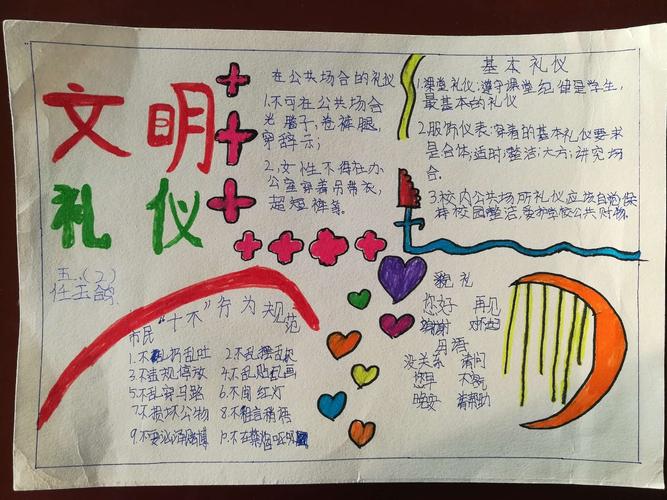 文明
礼仪
五.(2)
在公共场合的礼仪
1.不可在公共场合
光膀子,卷裤腿,
穿
2.女性不得在办
公室穿着吊带衣,
超短裤等。
基本礼仪
1.课堂礼仪:遵守课堂纪律是学生,
最基本的礼仪
2.服饰仪表:穿着的基本礼仪要求
是合体;适时;整洁;大方;讲究场
合。
3.校内公共场所礼仪应该自觉保
持校园整洁,爱护学校公共财物。
市民"十不"行为规范
1.不乱扔乱吐
2.不乱摆乱
3.不违规停放
4.不乱贴乱画
5.不乱穿马路
6.不闯红灯
7.不损坏公物
8.不粗言秽语
9.不要 赌博
10.不在禁烟
貌礼
您好 再见
谢谢 对不起
用语
没关系 请问
您早 不客气
晚安 请帮助